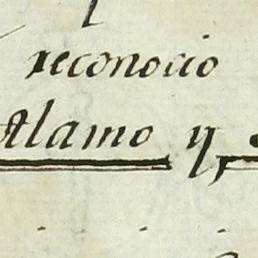 reconocio
Alamo y